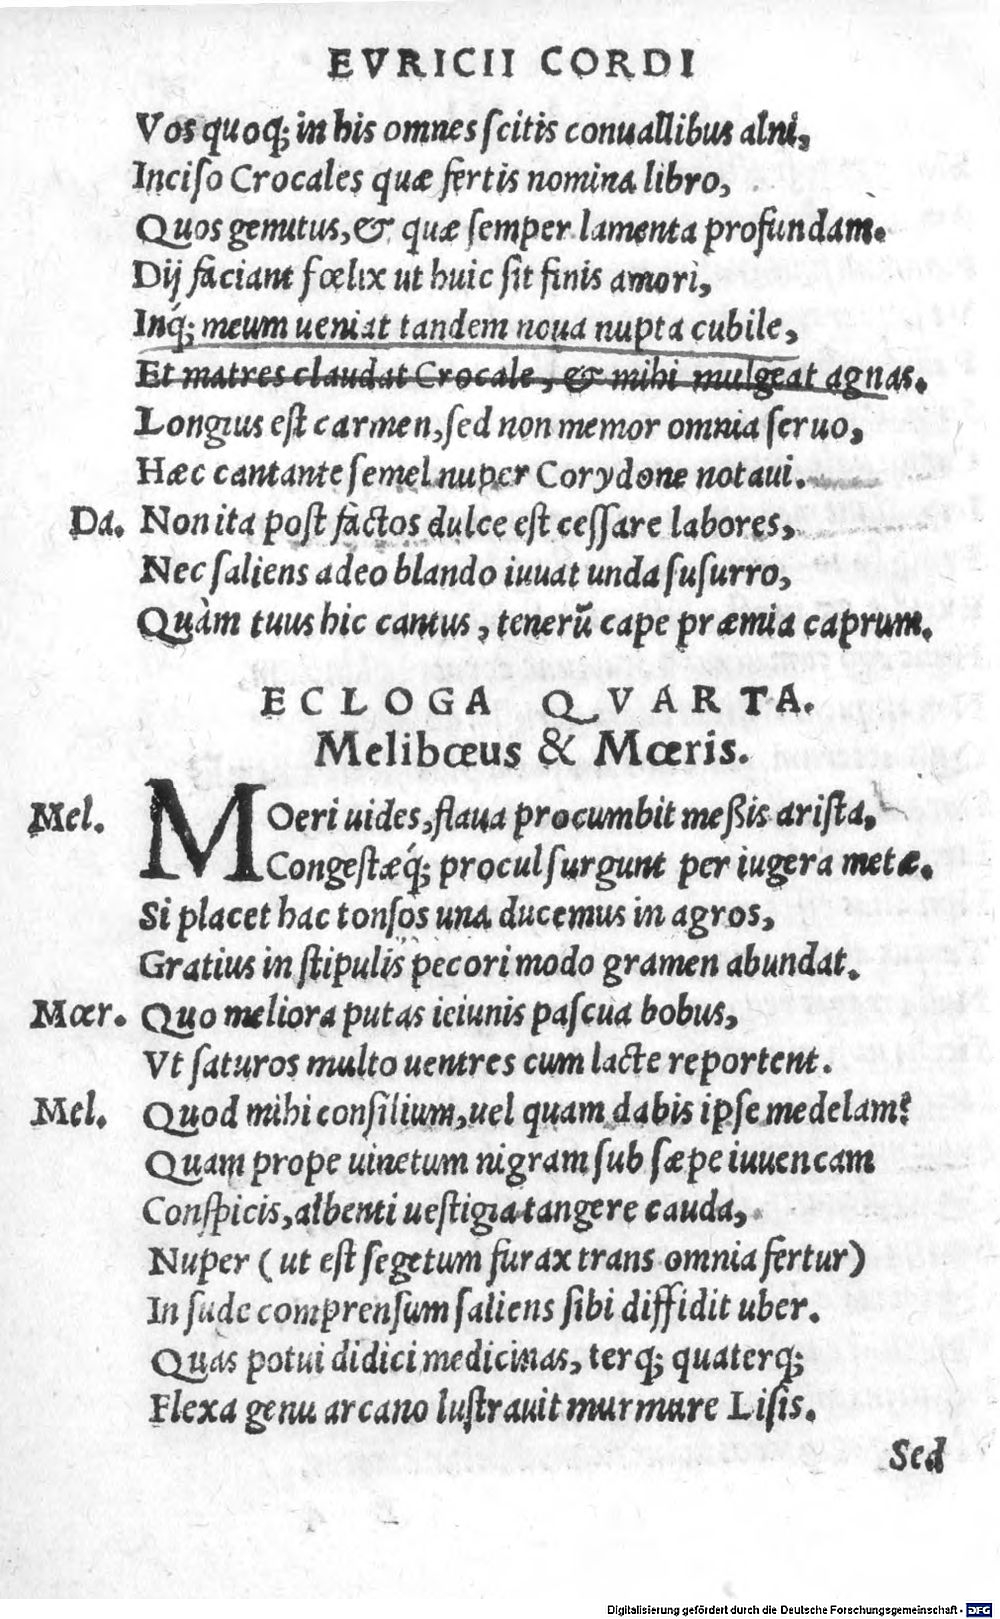 EVRICII CORDI
Vos quoq; in his omnes scitis conuallibus alni,
Inciso Crocales quæ fertis nomina libro,
Quos gemitus, & quæ semper lamenta profundam.
Dij faciant fœlix ut huic sit finis amori,
Inq́; meum ueniat tandem noua nupta cubile,
Et matres claudat Crocale, & mihi mulgeat agnas.
Longius est carmen, sed non memor omnia seruo,
Hæc cantante semel nuper Corydone notaui.
Da. Non ita post factos dulce est cessare labores,
Nec saliens adeo blando iuuat unda susurro,
Quàm tuus hic cantus, tenerū cape præmia caprum.
ECLOGA QVARTA.
Melibœus & Mœris.
Mel. MOeri uides, flaua procumbit meßis arista,
Congestæq́; procul surgunt per iugera metæ.
Si placet hac tonsos una ducemus in agros,
Gratius in stipulis pecori modo gramen abundat.
Mœr. Quo meliora putas ieiunis pascua bobus,
Vt saturos multo uentres cum lacte reportent.
Mel. Quod mihi consilium, uel quam dabis ipse medelam?
Quam prope uinetum nigram sub sæpe iuuencam
Conspicis, albenti uestigia tangere cauda,
Nuper (ut est segetum furax trans omnia fertur)
In sude comprensum saliens sibi diffidit uber.
Quas potui didici medicinas, terq; quaterq;
Flexa genu arcano lustrauit murmure Lisis.
Sed
Digitalisierung gefördert durch die Deutsche Forschungsgemeinschaft - DFG